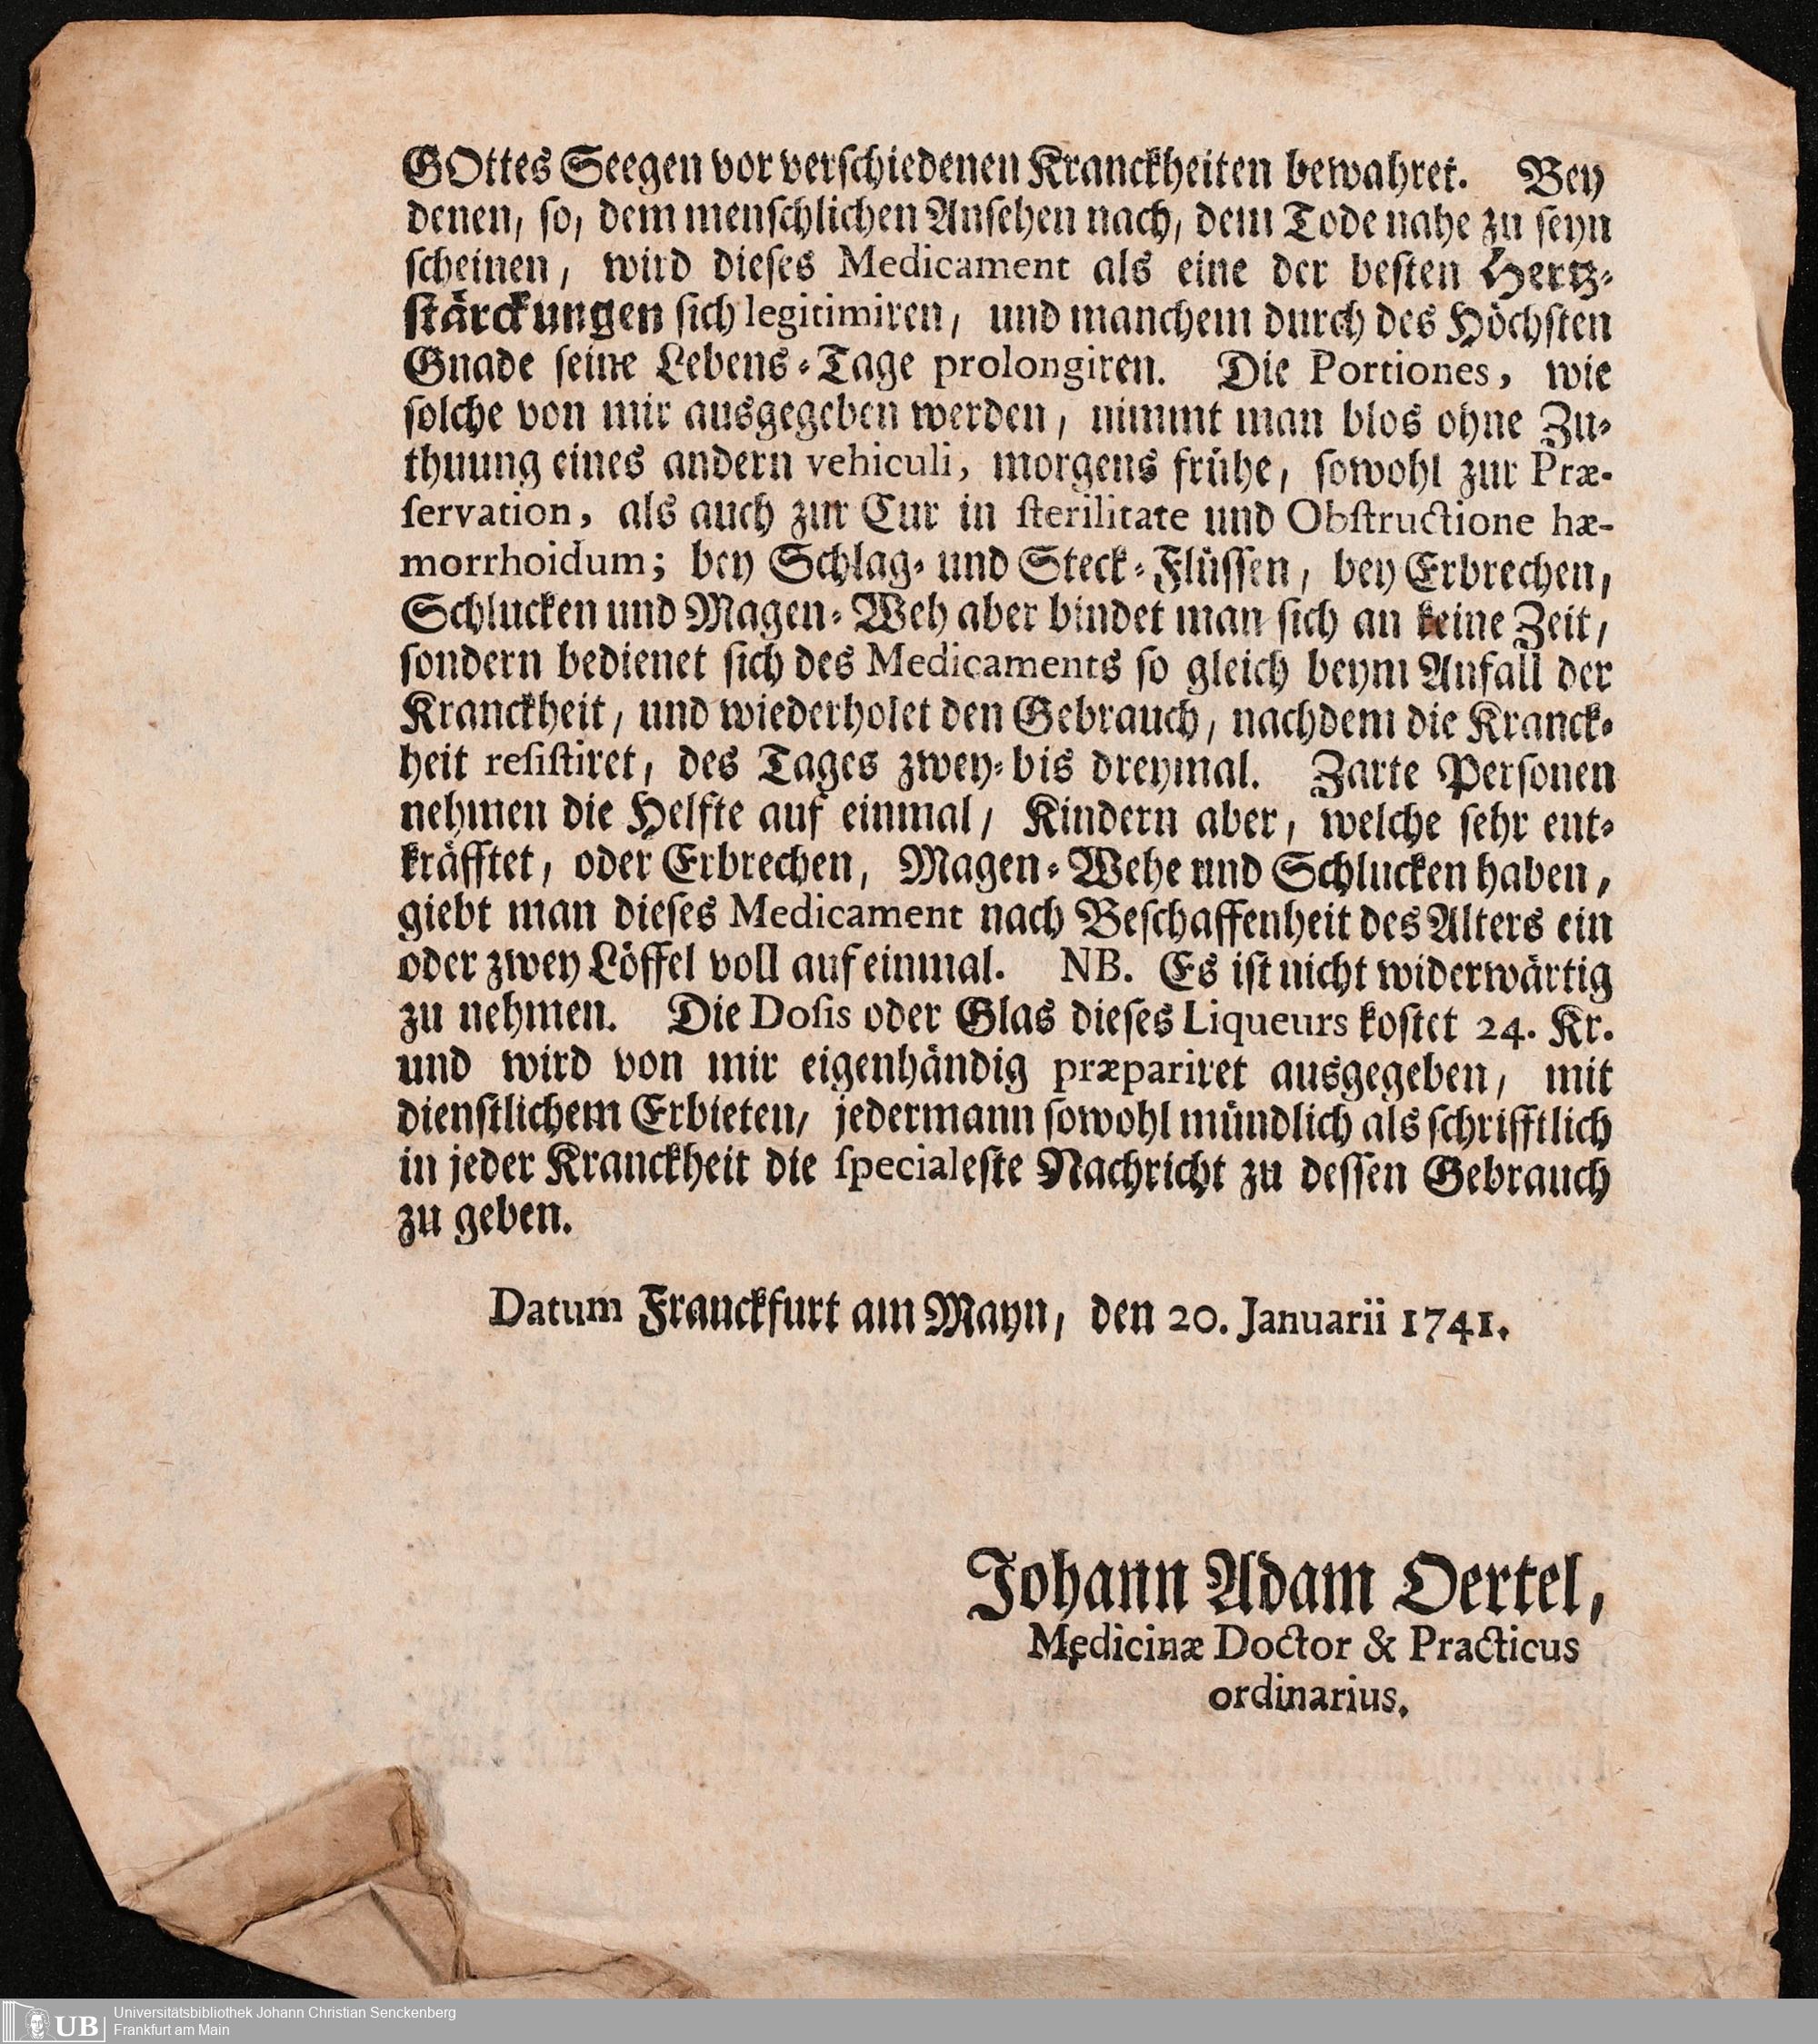 GOttes Seegen vor verschiedenen Kranckheiten bewahret. Bey
denen, so, dem menschlichen Ansehen nach, dem Tode nahe zu seyn
scheinen, wird dieses Medicament als eine der besten Hertz-
stärckungen sich legitimiren, und manchem durch des Höchsten
Gnade seine Lebens-Tage prolongiren. Die Portiones, wie
solche von mir ausgegeben werden, nimmt man blos ohne Zu-
thuung eines andern vehiculi, morgens frühe, sowohl zur Præ-
servation, als auch zur Cur in sterilitate und Obstructione hæ-
morrhoidum; bey Schlag- und Steck-Flüssen, bey Erbrechen,
Schlucken und Magen-Weh aber bindet man sich an keine Zeit,
sondern bedienet sich des Medicaments so gleich beym Anfall der
Kranckheit, und wiederholet den Gebrauch, nachdem die Kranck-
heit resistiret, des Tages zwey- bis dreymal. Zarte Personen
nehmen die Helfte auf einmal, Kindern aber, welche sehr ent-
kräfftet, oder Erbrechen, Magen-Wehe und Schlucken haben,
giebt man dieses Medicament nach Beschaffenheit des Alters ein
oder zwey Löffel voll auf einmal. NB. Es ist nicht widerwärtig
zu nehmen. Die Dosis oder Glas dieses Liqueurs kostet 24. Kr.
und wird von mir eigenhändig præpariret ausgegeben, mit
dienstlichem Erbieten, jedermann sowohl mündlich als schrifftlich
in jeder Kranckheit die specialeste Nachricht zu dessen Gebrauch
zu geben.
Datum Franckfurt am Mayn, den 20. Januarii 1741.
Johann Adam Oertel,
Medicinæ Doctor & Practicus
ordinarius.
UB
Universitätsbibliothek Johann Christian Senckenberg
Frankfurt am Main